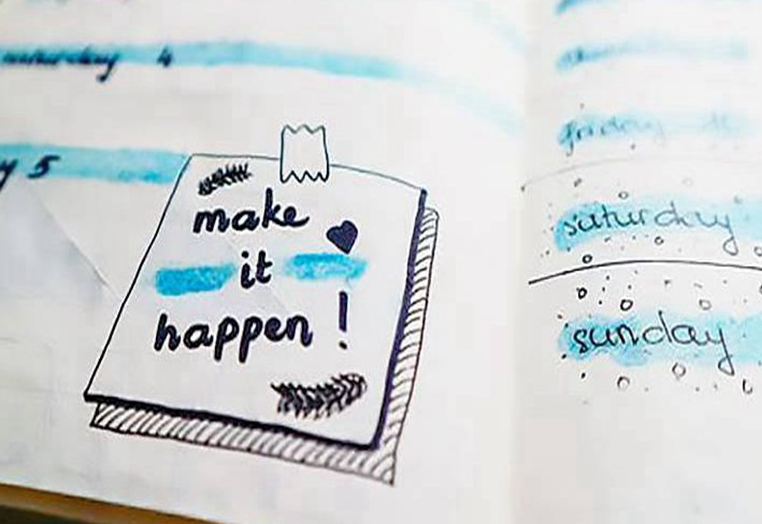 saturday 4
5
make
it
happen!
friday
saturday
sunday